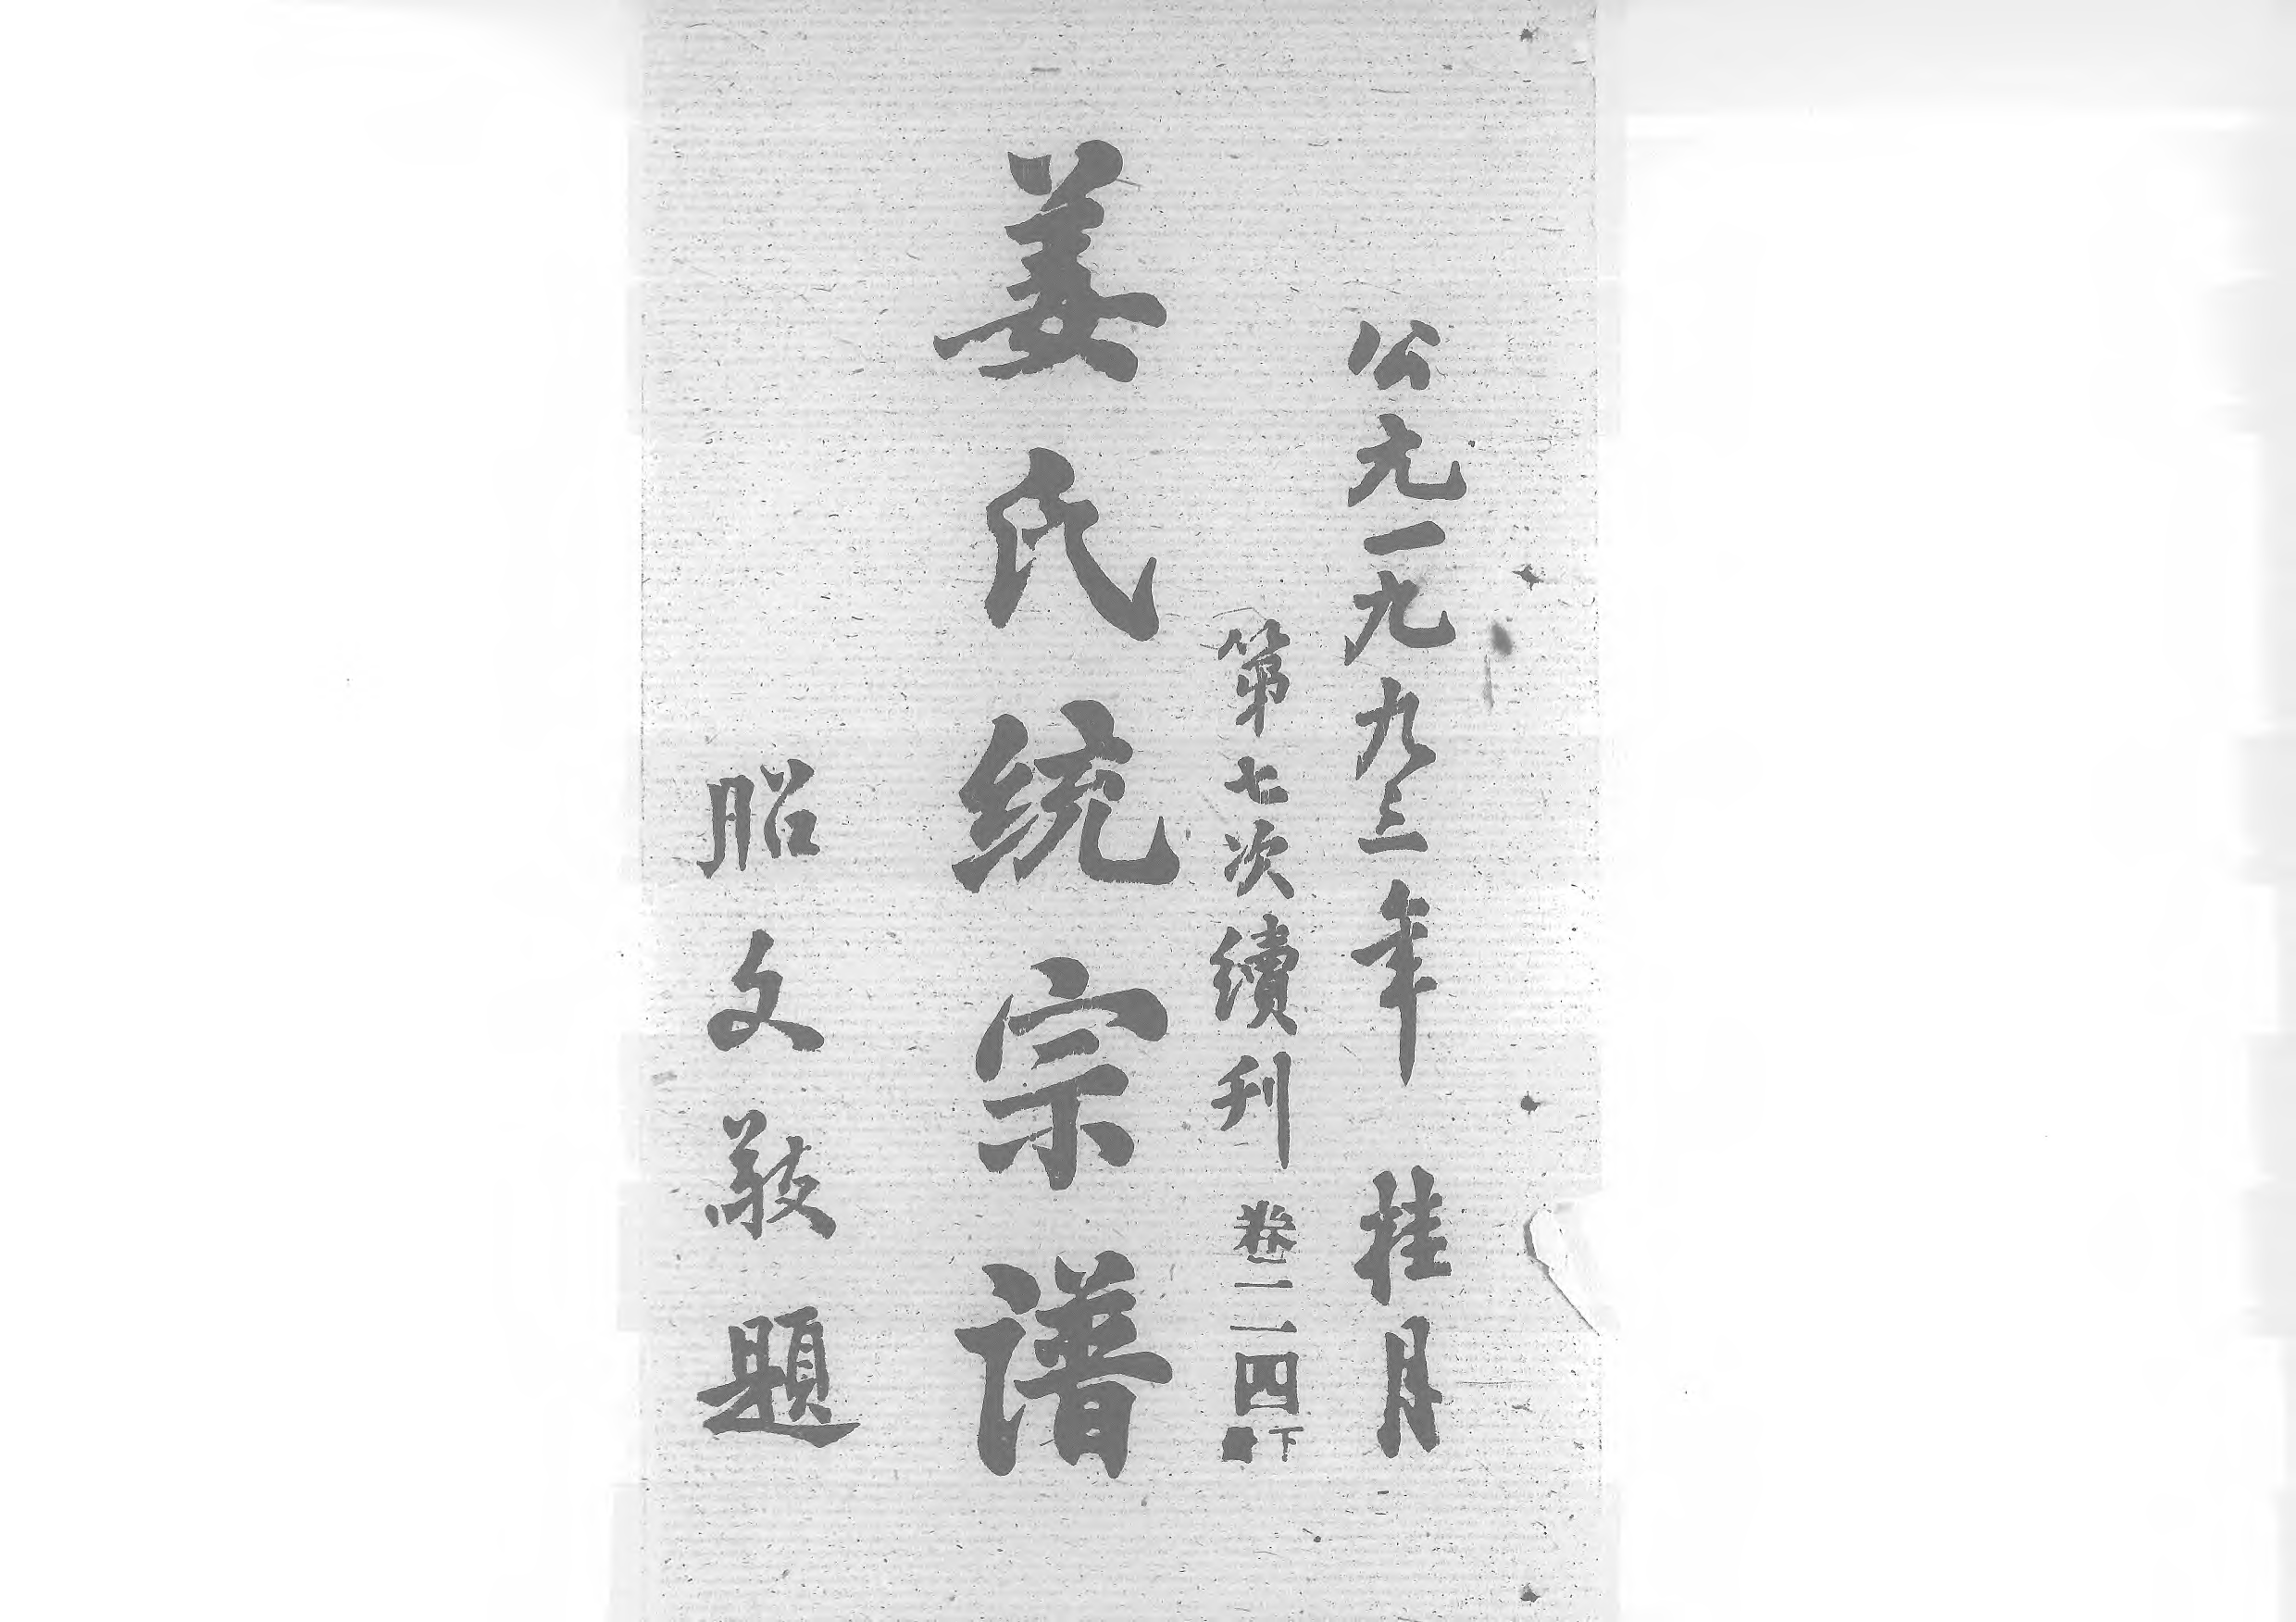 公元一九九三年 桂月
第七次續刊 卷二四 下
姜氏统宗谱
昭文敬題